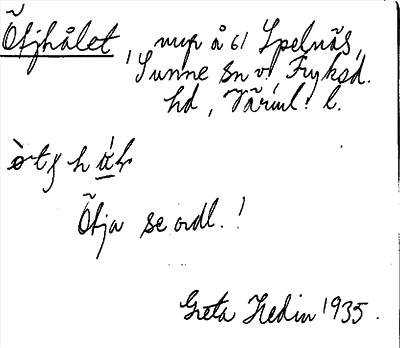 Ötjhålet, myr å 61 Spelnäs,
Sunne sn v. Fryksd.
hd, Värml. l.
Ötja se ordl.!
Greta Hedin 1935.